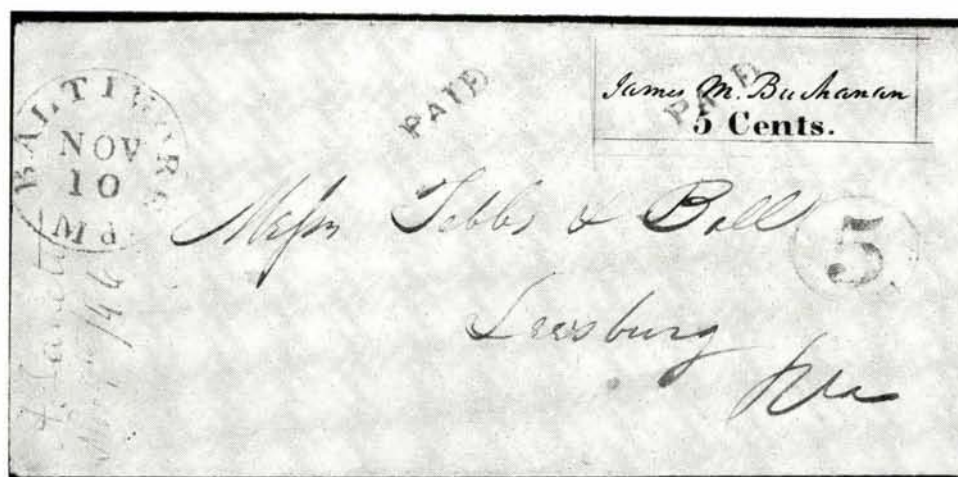 BALTIMORE
NOV
10
Md.
PAID
PAID
James M. Buchanan
5 Cents.
Messrs Tebbs & Ball
5
Leesburg
Va